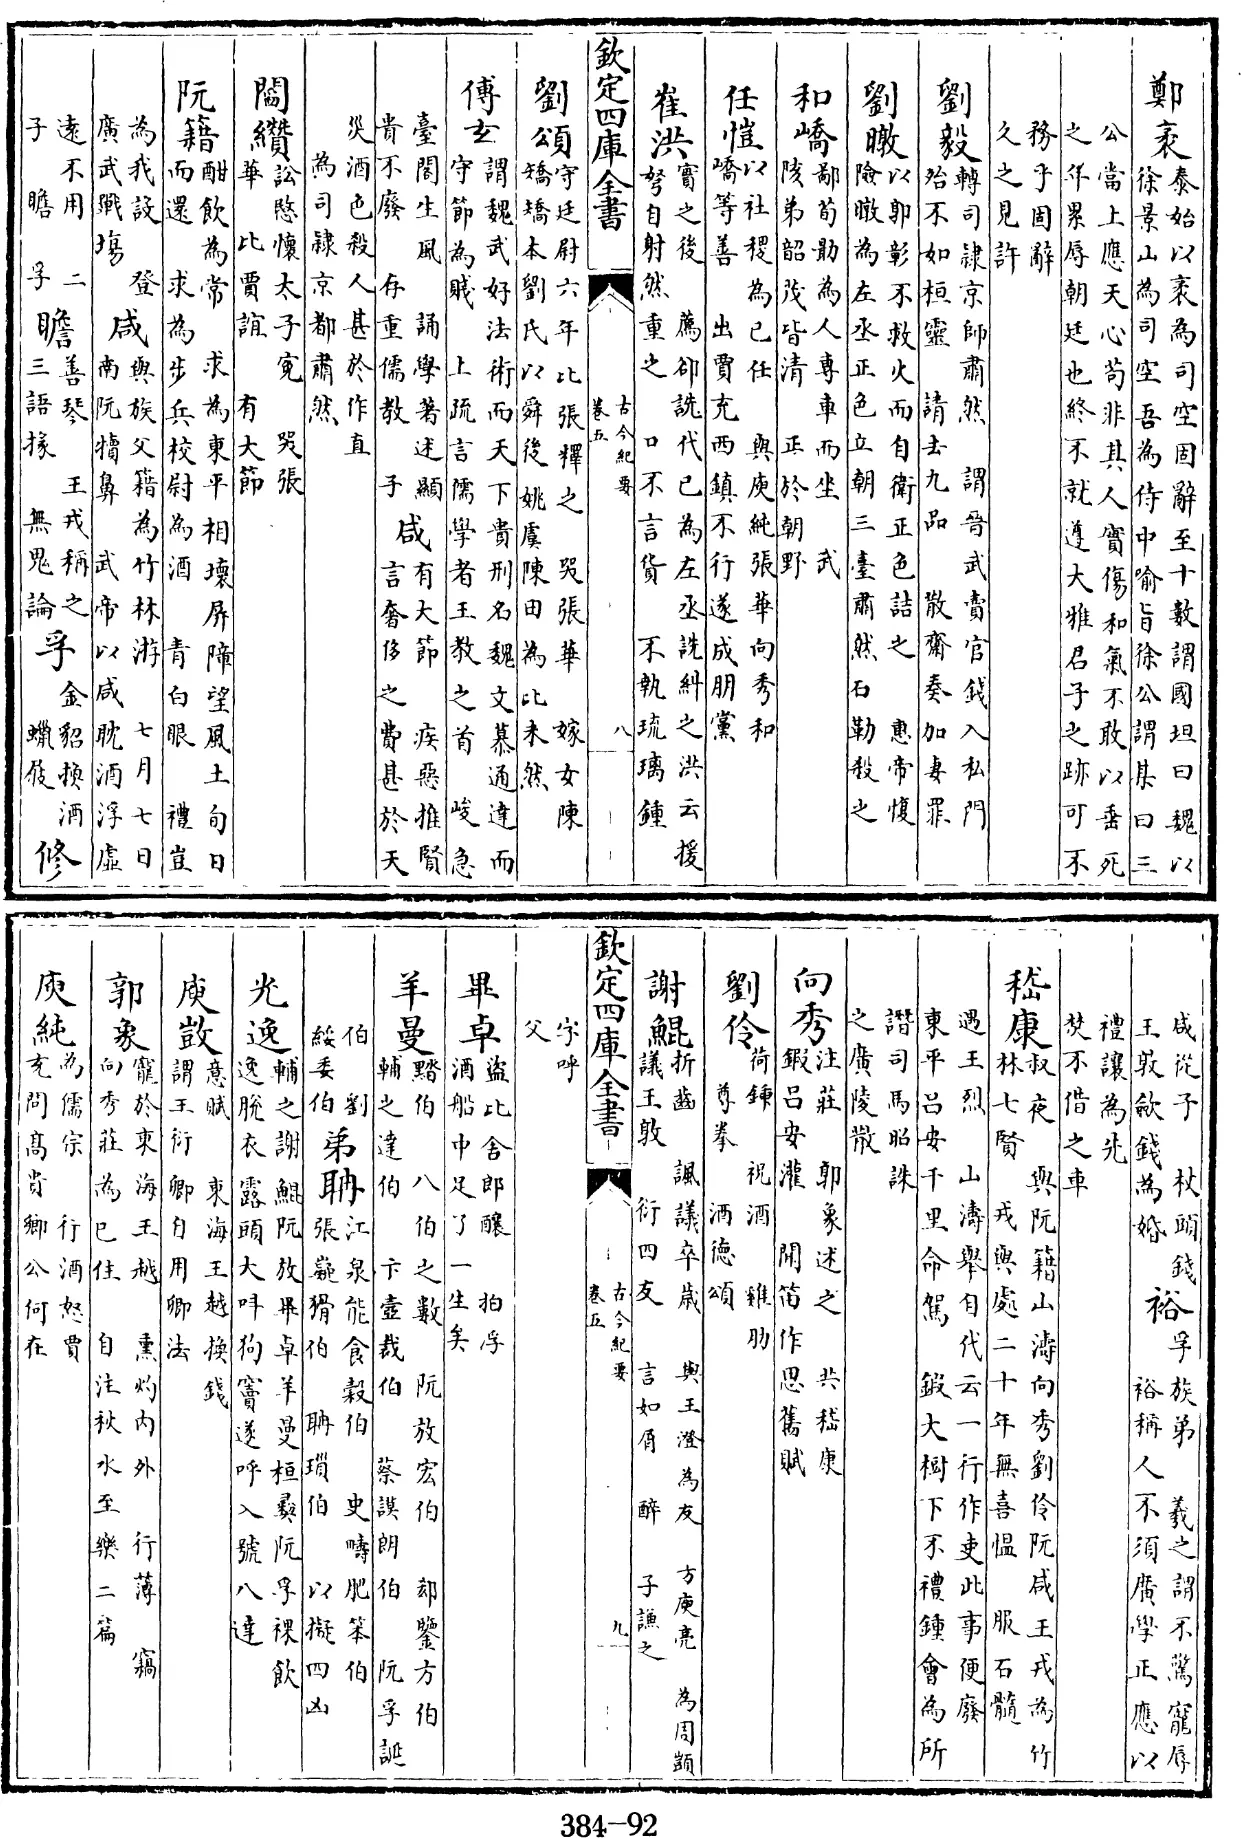 鄭袤
泰始以袤為司空固辭至十數謂國坦曰魏以
徐景山為司空吾為侍中喻旨徐公謂某曰三
公當上應天心苟非其人實傷和氣不敢以垂死
之年累辱朝廷也終不就遵大雅君子之跡可不
務乎固辭
久之見許
劉毅
轉司隸京師肅然 謂晉武賣官錢入私門
殆不如桓靈 請去九品 散齋奏加妻罪
劉暾
以郭彰不救火而自衛正色詰之 惠帝復
險暾為左丞正色立朝三臺肅然石勒殺之
和嶠
鄙荀勗為人專車而坐 武
陵弟韶茂皆清 正於朝野
任愷
以社稷為已任 與庾純張華向秀和
嶠等善 出賈充西鎮不行遂成朋黨
崔洪
實之後 薦郤詵代已為左丞詵糾之洪云援
弩自射然重之 口不言貨 不執琉璃鍾
欽定四庫全書
古今紀要
卷五
八
劉頌
守廷尉六年比張釋之 哭張華 嫁女陳
矯矯本劉氏以舜後姚虞陳田為比未然
傅玄
謂魏武好法術而天下貴刑名魏文慕通達而
守節為賤 上疏言儒學者王教之首 峻急
臺閣生風 誦學著述顯
貴不廢 存重儒教 子
咸
有大節 疾惡推賢
言奢侈之費甚於天
災酒色殺人甚於作直
為司隸京都肅然
閻纘
訟愍懷太子寃 哭張
華 比賈誼 有大節
阮籍
酣飲為常 求為東平相壞屏障望風土旬日
而還 求為步兵校尉為酒 青白眼 禮豈
為我設 登
廣武戰塲
咸
與族父籍為竹林游 七月七日
南阮犢鼻 武帝以咸耽酒浮虛
遠不用 二
子瞻 孚
瞻
善琴 王戎稱之
三語掾 無鬼論
孚
金貂換酒
蠟屐
修
咸從子 杖頭錢
王敦歛錢為婚
裕
孚族弟 羲之謂不驚寵辱
裕稱人不須廣學正應以
禮讓為先
焚不借之車
嵇康
叔夜 與阮籍山濤向秀劉伶阮咸王戎為竹
林七賢 戎與處二十年無喜慍 服石髓
遇王烈 山濤舉自代云一行作吏此事便廢
東平呂安千里命駕 鍛大樹下不禮鍾會為所
譖司馬昭誅
之廣陵散
向秀
注莊 郭象述之 共嵇康
鍜呂安灌 聞笛作思舊賦
劉伶
荷鍤 祝酒 雞肋
尊拳 酒德頌
謝鯤
折齒 諷議卒歲 與王澄為友 方庾亮 為周顗
議王敦 衍四友 言如屑 醉 子謙之
欽定四庫全書
古今紀要
卷五
九
字呼
父
畢卓
盜比舍郎釀 拍浮
酒船中足了一生矣
羊曼
黯伯 八伯之數 阮放宏伯 郗鑒方伯
輔之達伯 卞壼裁伯 蔡謨朗伯 阮孚誕
伯 劉
綏委伯
弟聃
江泉能食穀伯 史疇肥笨伯
張嶷猾伯 聃瑣伯 以擬四凶
光逸
輔之謝鯤阮放畢卓羊曼桓彞阮孚裸飲
逸脫衣露頭大呌狗竇遂呼入號八達
庾敳
意賦 東海王越換錢
謂王衍卿自用卿法
郭象
寵於東海王越 熏灼内外 行薄 竊
向秀莊為已住 自注秋水至樂二篇
庾純
為儒宗 行酒怒賈
充問髙貴鄉公何在
384-92